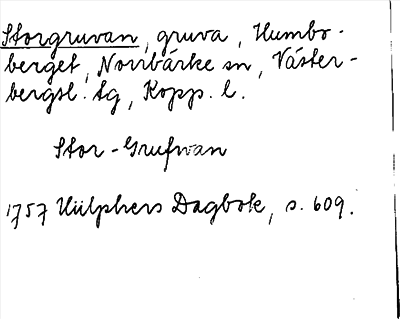 Storgruvan, gruva, Humbo-
berget, Norrbärke sn, Väster-
bergsl. tg, Kopp. l.
Stor-Grufwan
1757 Hülphers Dagbok, s. 609.